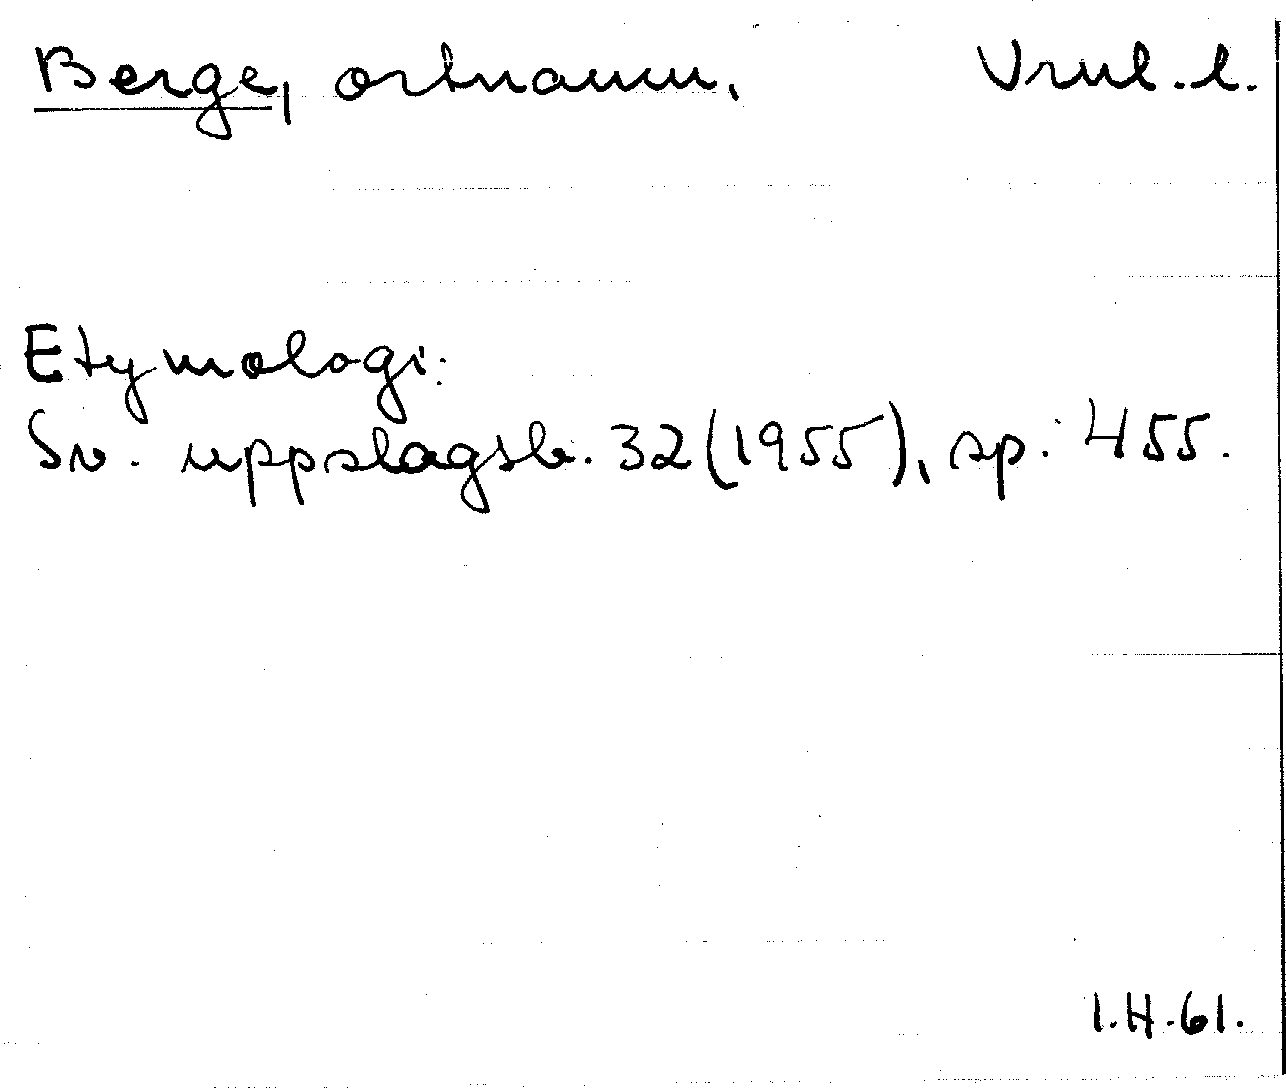 Berge, ortnamn. Vrml. l.
Etymologi:
Sv. uppslagsb. 32 (1955), sp. 455.
I.H.61.